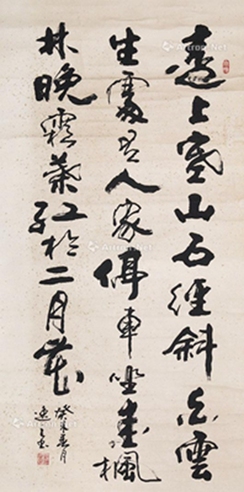 遠上寒山石徑斜白雲
生處有人家停車坐愛楓
林晚霜葉紅於二月花
癸未春月